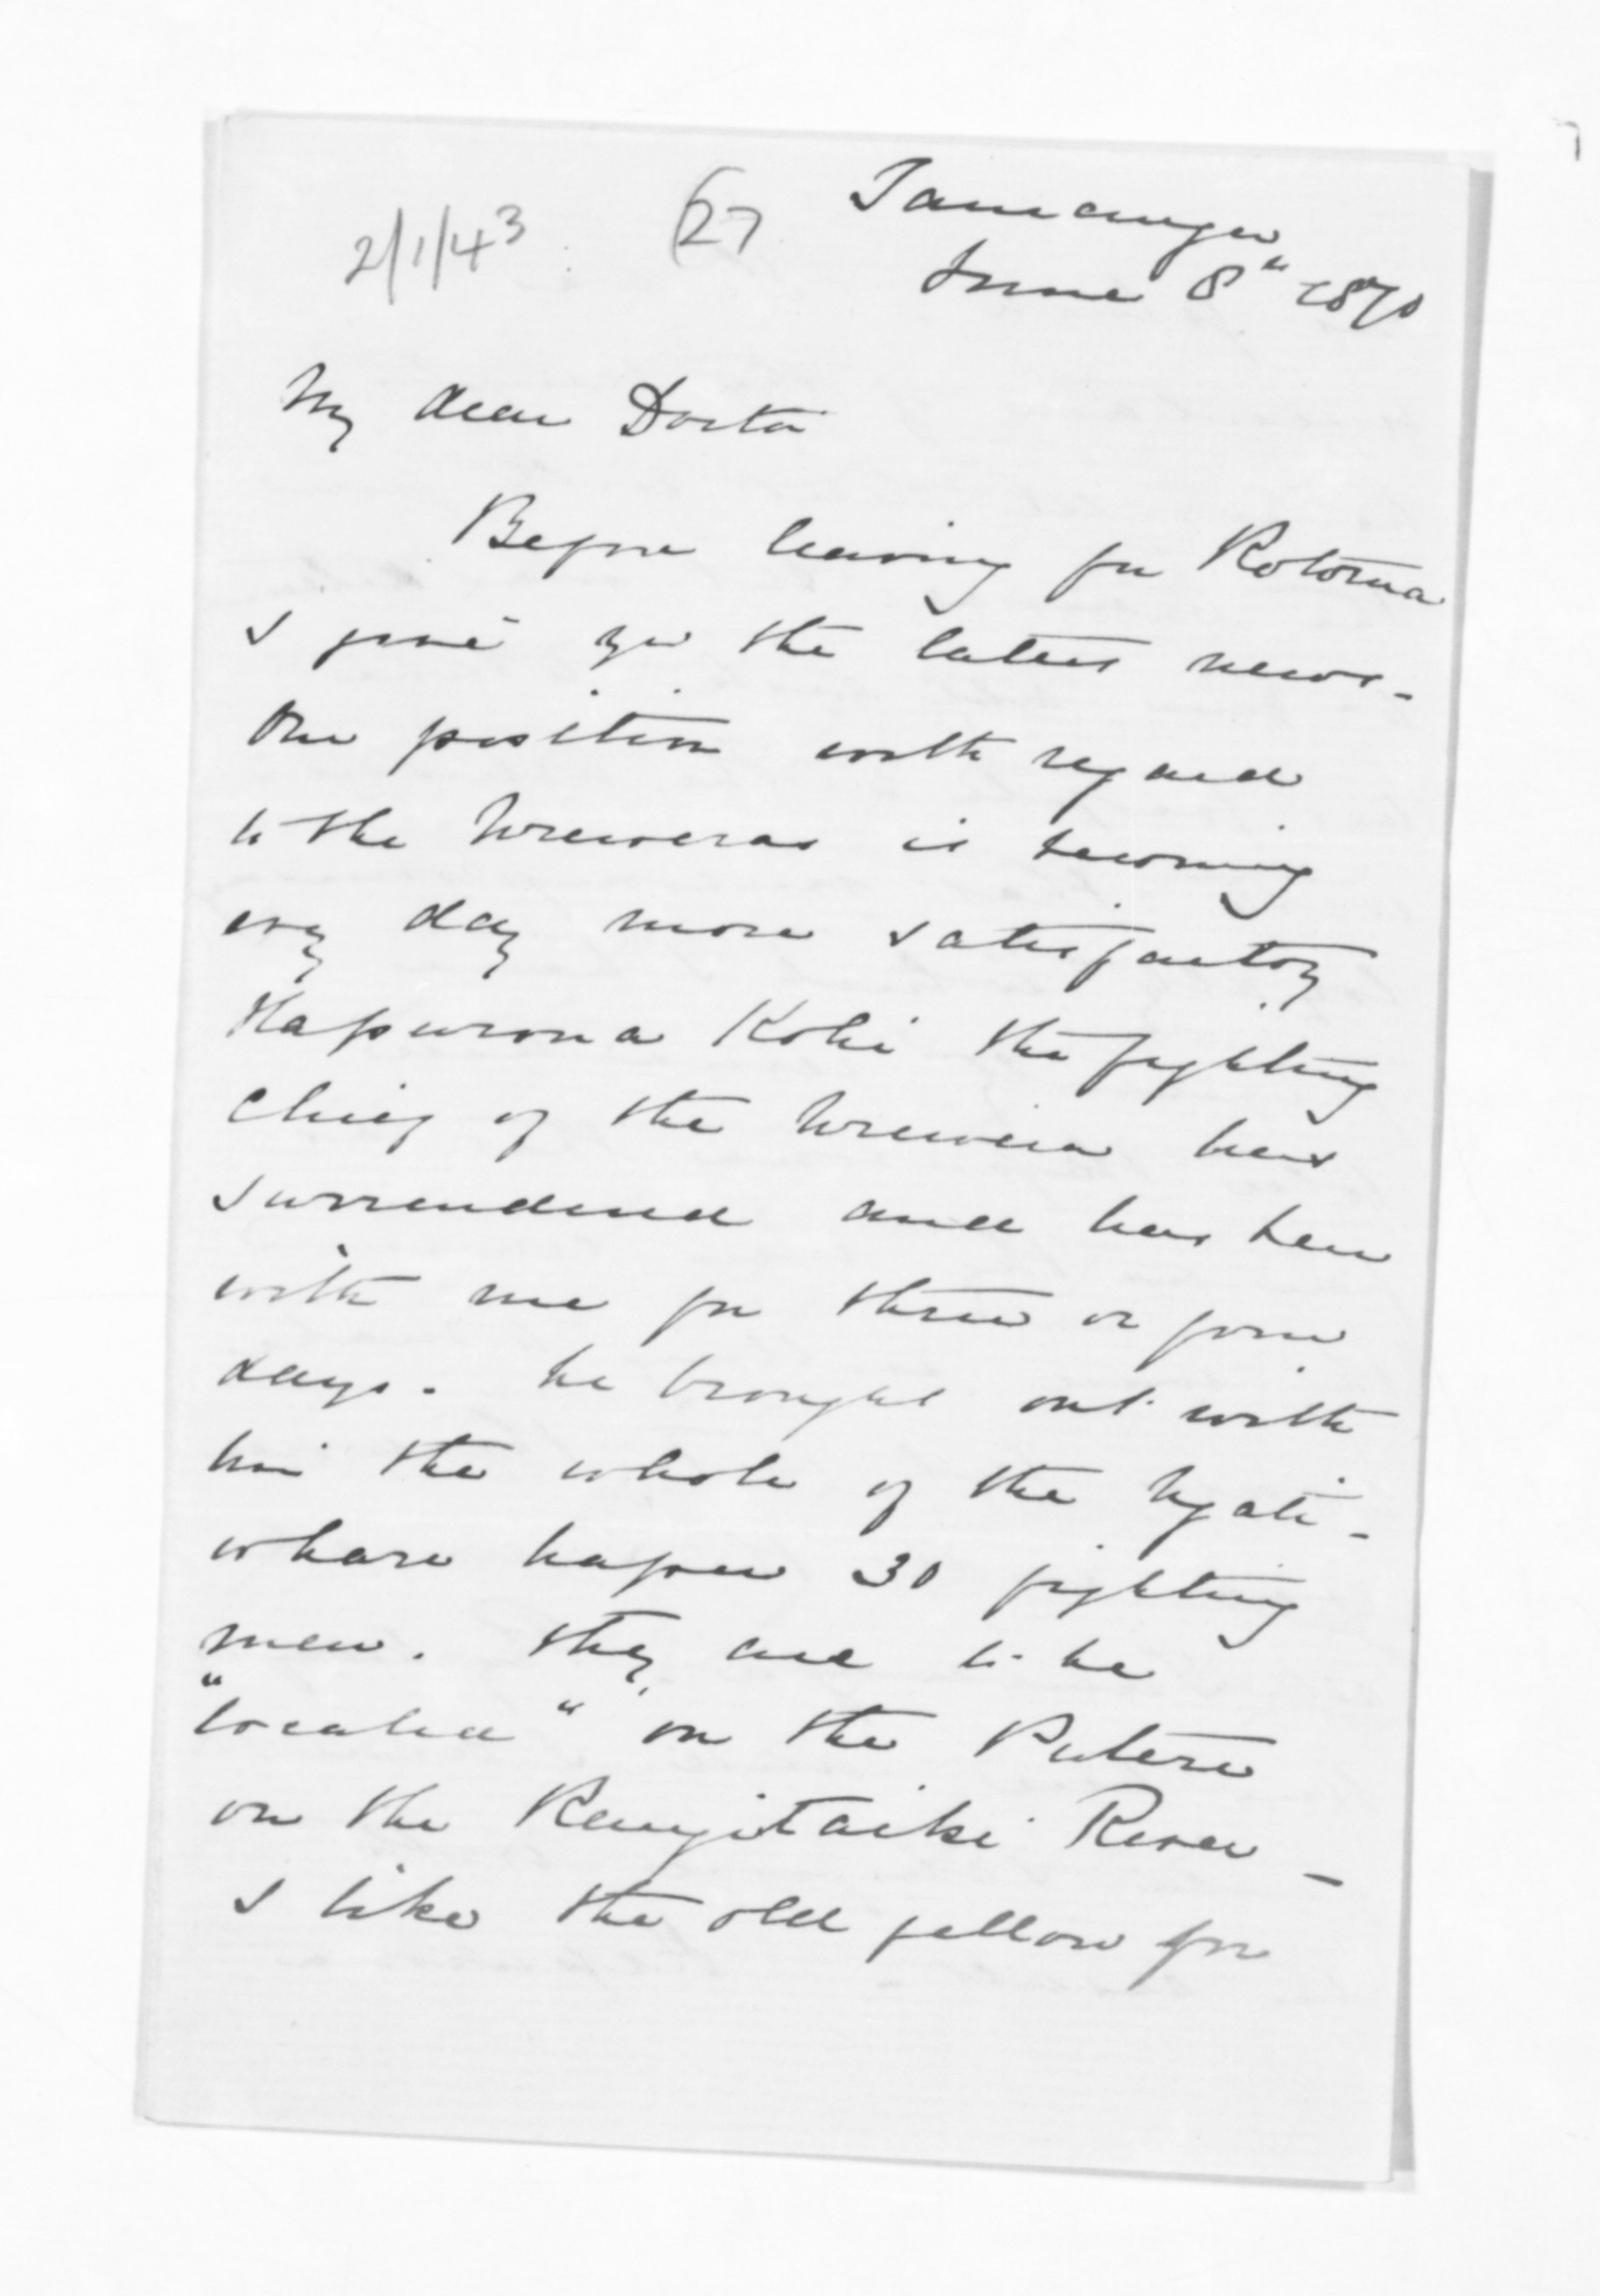 2/1/43 (27 Tauranga
June 8th 1870
My dear Doctor
Before leaving for Rotorua
I give you the latest news -
Our position with regard
to the Urewera is becoming
every day more satisfactory
Hapurona Kohi the fighting
Chief of the Urewera has
surrendered and has been
with me for three or four
days. he brought out with
him the whole of the Ngati -
whare hapu 30 fighting
men. they are to be
"located" on the Putere
on the Rangitaiki River -
I like the old fellow for